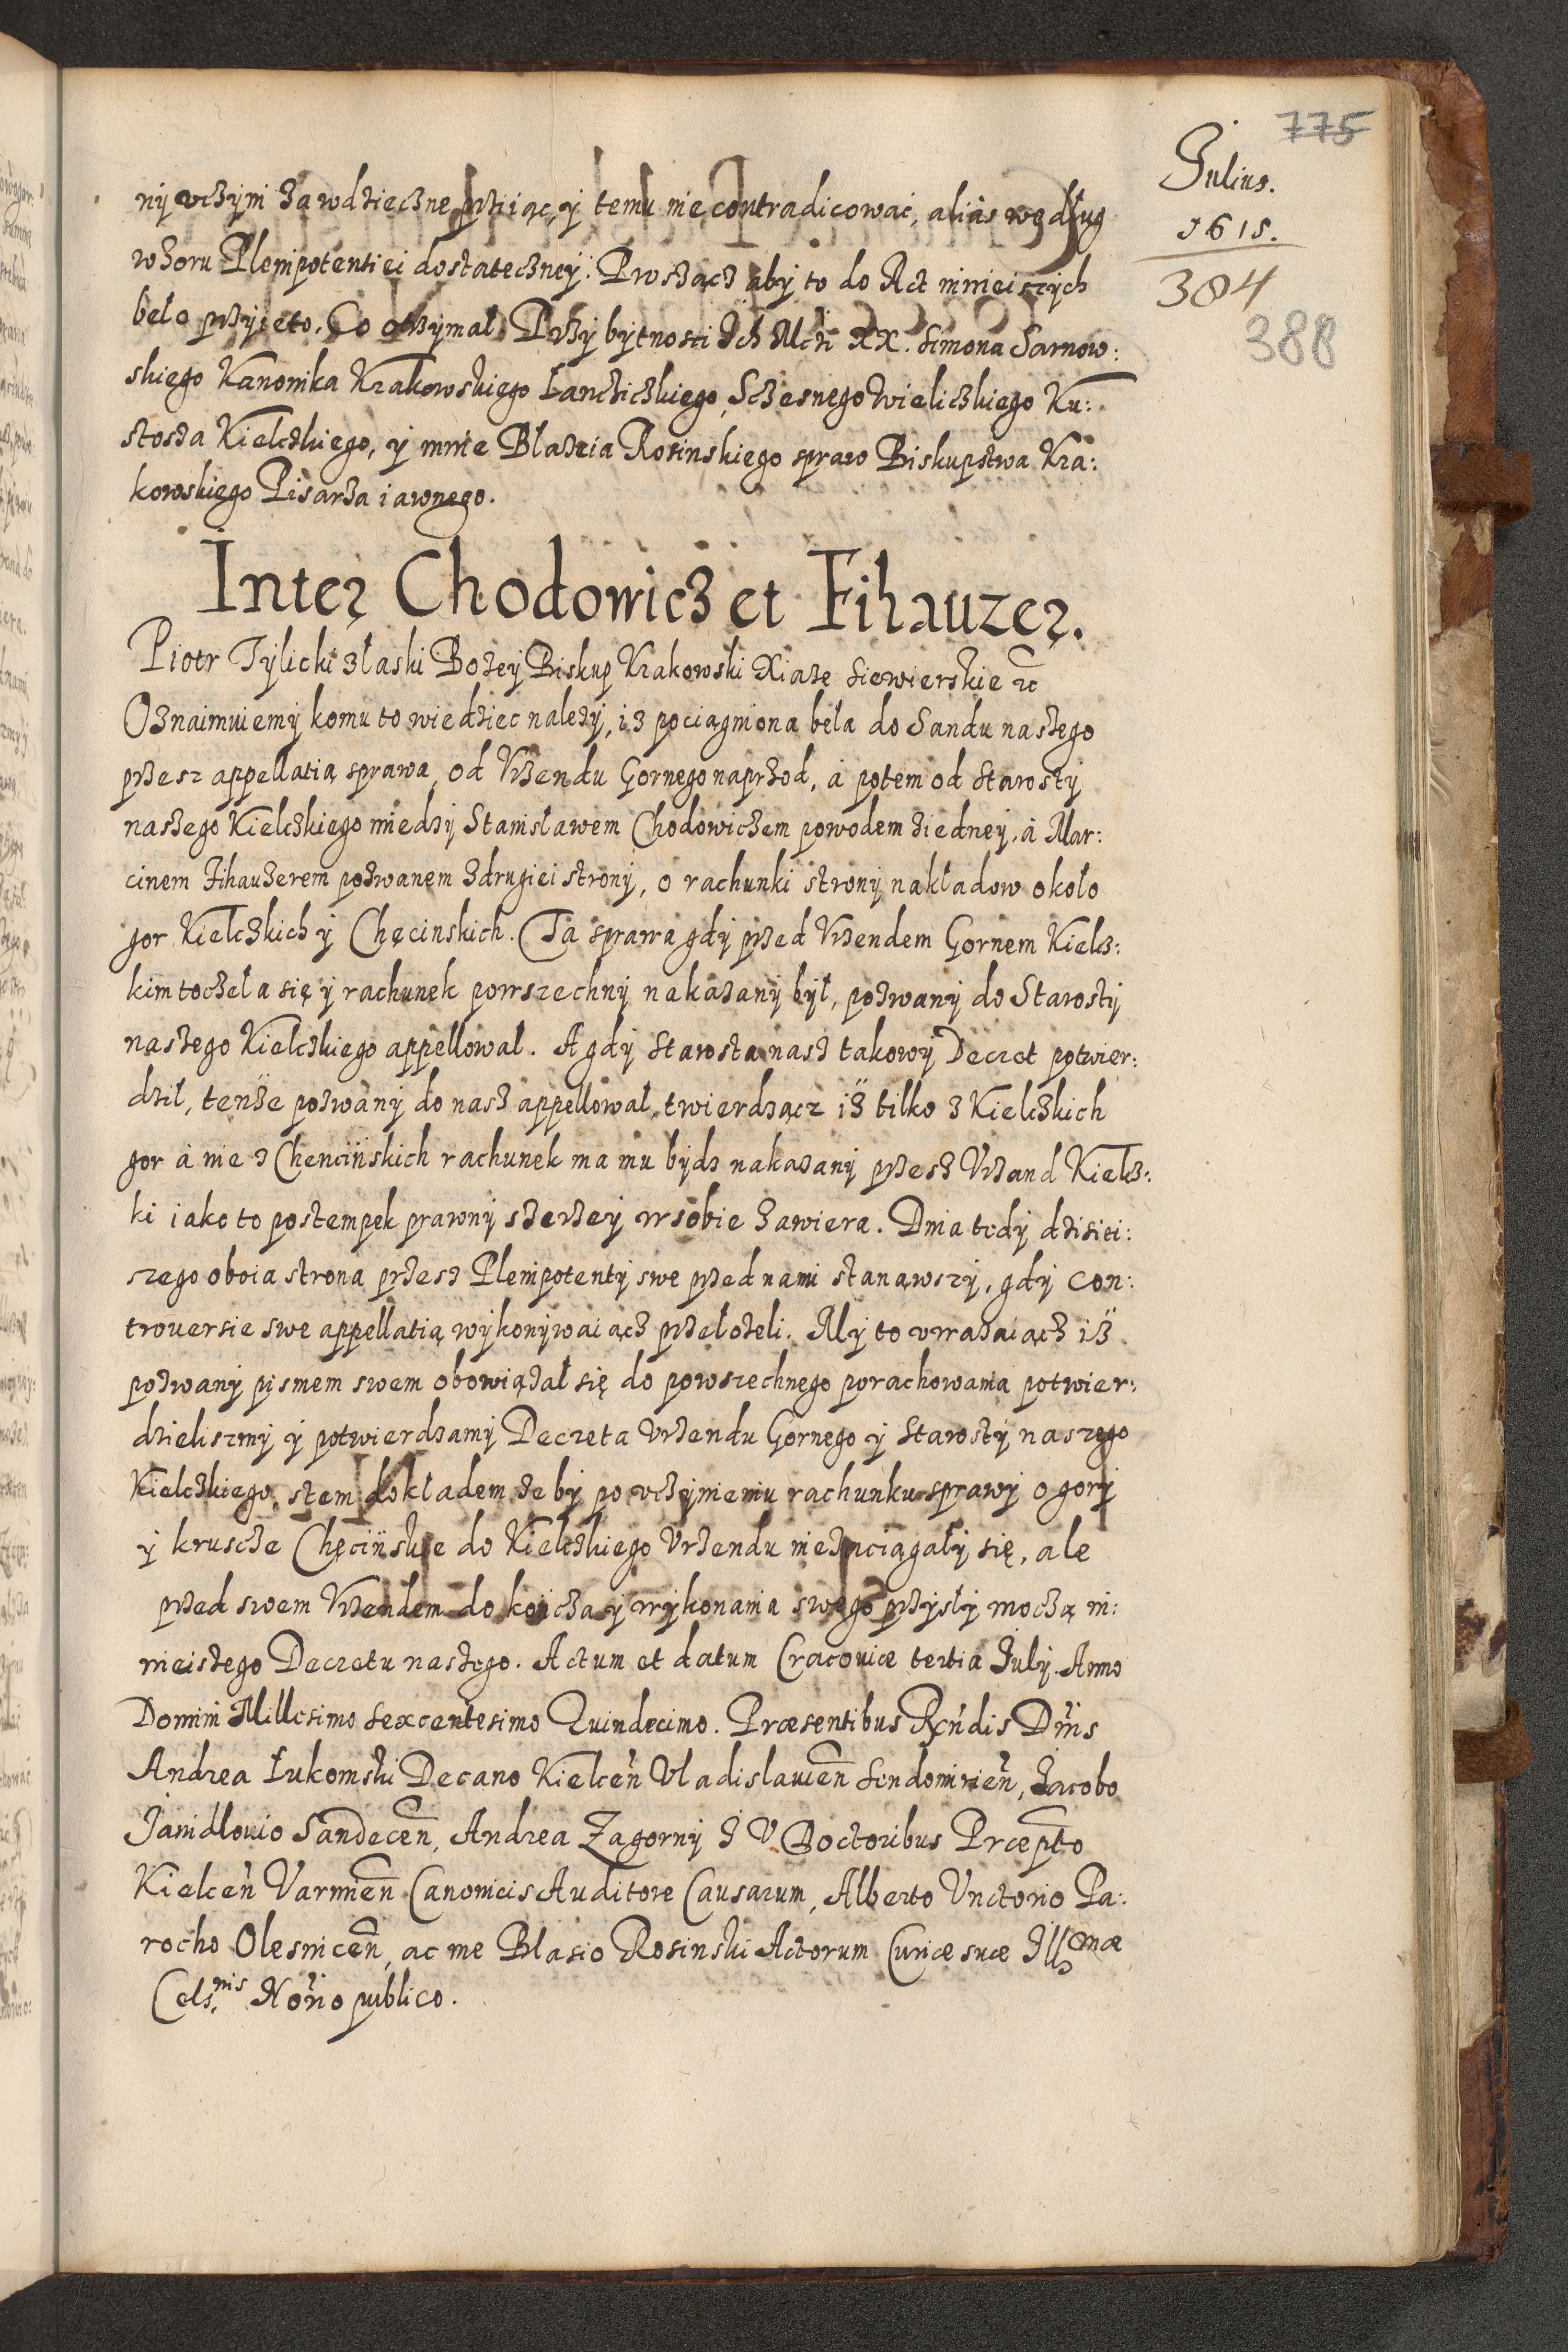 775
Julius.
1615.
384
388
ny vczyni zawdzieczne przyiąc, y temu nie contradicowac, alias według
wzoru Plenipotentiei dostateczney. Prosząch aby to do Act ninieiszych
beło przyieto. Co otrzymał. Przy bytnosci Ich Mczi XX. Simona Sarnow:
skiego Kanonika Krakowskiego Łanczickiego, Sczesnego Wieliczkiego Ku:
stosza Kielczkiego, y mnie Błazeia Rosinskiego spraw Biskupstwa Kra:
kowskiego Pisarza iawnego.
Inter Chodowicz et Fihauzer.
Piotr Tylicki z łaski Bozey Biskup Krakowski Xiaze Siewierskie etc
Oznaimuiemy komu to wiedziec nalezy, iz pociągniona beła do Sandu naszego
przesz appellatią sprawa, od Vrzendu Gornego naprzod, a potem od Starosty
naszego Kielczkiego miedzy Stanisławem Chodowiczem powodem ziedney, a Mar:
cinem Fihauzerem pozwanem z drugiei strony, o rachunki strony nakładow około
gor Kielczkich y Chęcinskich. Ta sprawa gdy przed Vrzendem Gornem Kielcz:
kim toczeła się y rachunek powszechny nakazany był, pozwany do Starosty
naszego Kielczkiego appellował. A gdy Starosta nasz takowy Decret potwier:
dził, tenze pozwany do nasz appellował, twierdząc iz tilko z Kielczkich
gor a nie z Chencinskich rachunek ma mu bydz nakazany przesz Vrzand Kielcz:
ki iako to postempek prawny szerzey w sobie zawiera. Dnia tedy dzisiei:
szego oboia strona przesz Plenipotenty swe przed nami stanąwszy, gdy con:
trouersie swe appellatią wykonywaiącz przełozeli. My to vwazaiącz iz
pozwany pismem swem obowiązał się do powszechnego porachowania potwier:
dzieliszmy y potwierdzamy Decreta Vrzendu Gornego y Starosty naszego
Kielczkiego, stem dokładem zeby po vczynieniu rachunku sprawy o gory
y krusze Chęcinskie do Kielczkiego Vrzendu nie zaciągały się, ale
przed swem Vrzendem do koncza y wykonania swego przysły moczą ni:
nieiszego Decretu naszego. Actum et datum Cracouiæ tertia July. Anno
Domini Millesimo Sexcentesimo Quindecimo. Præsentibus Rñdis Dñis
Andrea Łukomski Decano Kielceñ Vladislauieñ Sendomirieñ, Jacobo
Janidlouio Sandeceñ, Andrea Zagorny J V Doctoribus Præpto
Kielceñ Varmieñ Canonicis Auditore Causarum, Alberto Vnctorio Pa:
rocho Olesniceñ, ac me Blasio Rosinski Actorum Curiæ suæ Illmæ
Cels.nis Norio publico.